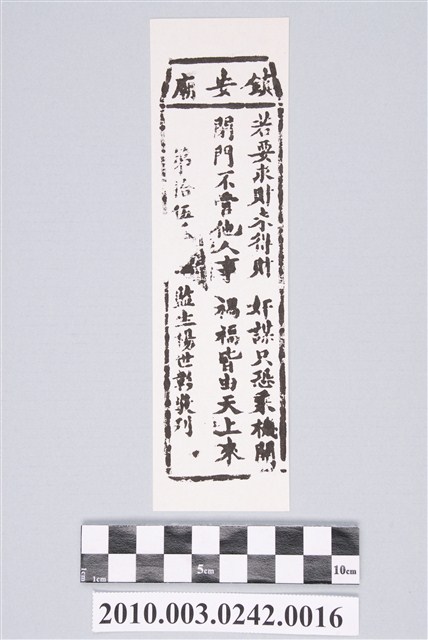 鎮安廟
若要求財未得財　奸謀只恐乘機關
閑門不管他人事　禍福皆由天上來
第拾伍
監生楊世彰敬刊
5cm
10cm
1cm
1cm
2010.003.0242.0016